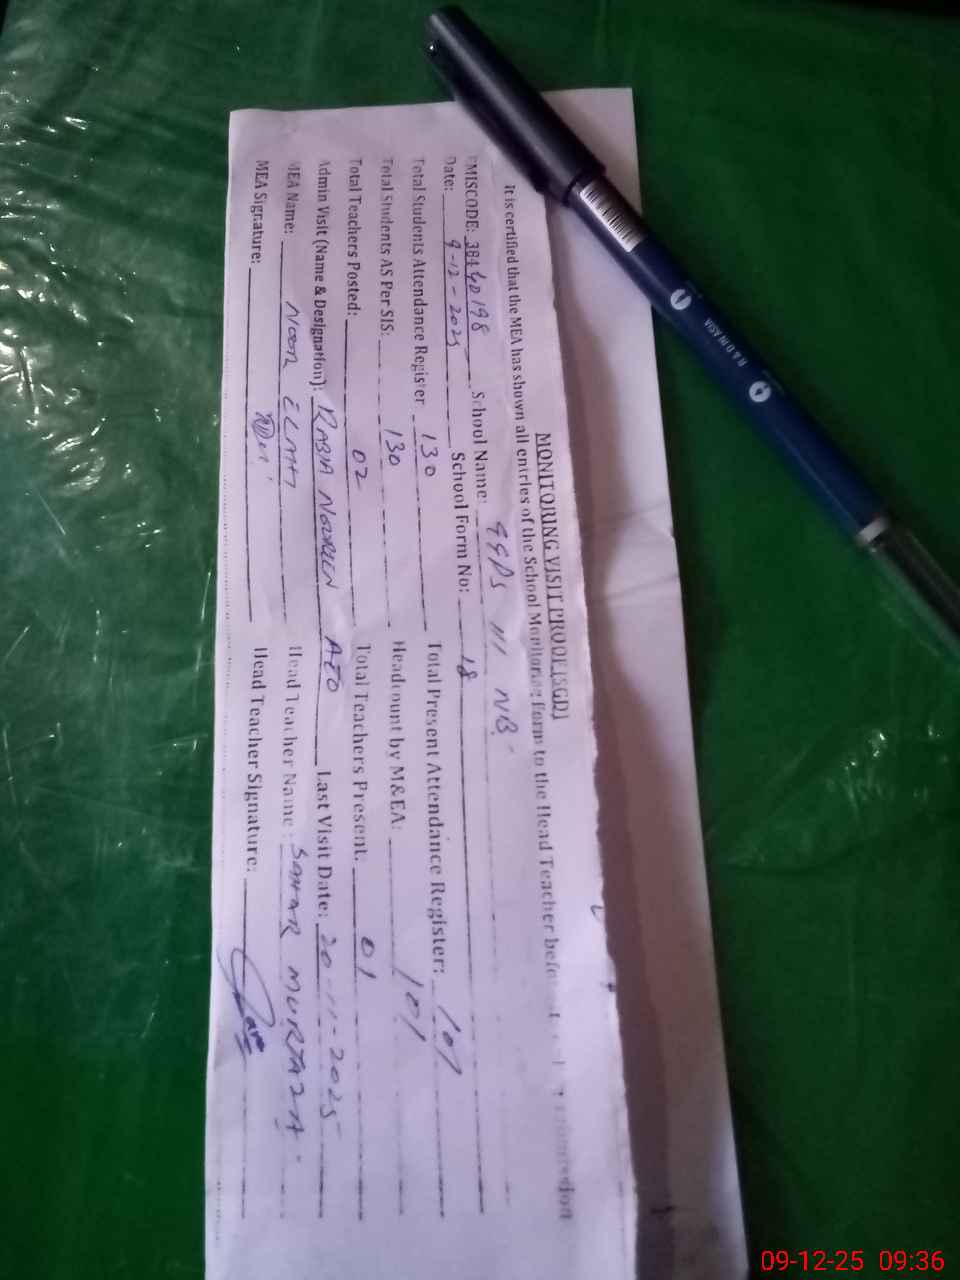 MONITORING VISIT PROOF (SGD)
It is certified that the MEA has shown all entries of the School Monitoring Form to the Head Teacher before submission
EMISCODE: 384 40198 School Name: GGPS 111 NB.
Date: 9-12-2025 School Form No: 18
Total Students Attendance Register 130 Total Present Attendance Register: 101
Total Students AS Per SIS: 130 Headcount by M&EA: 101
Total Teachers Posted: 02 Total Teachers Present: 01
Admin Visit (Name & Designation): RABIA NOUREEN AEO Last Visit Date: 20-11-2025
MEA Name: NOOR ELAHI Head Teacher Name: SAHAR MURTAZA.
MEA Signature: Head Teacher Signature:
R & D IN ASIA
09-12-25 09:36